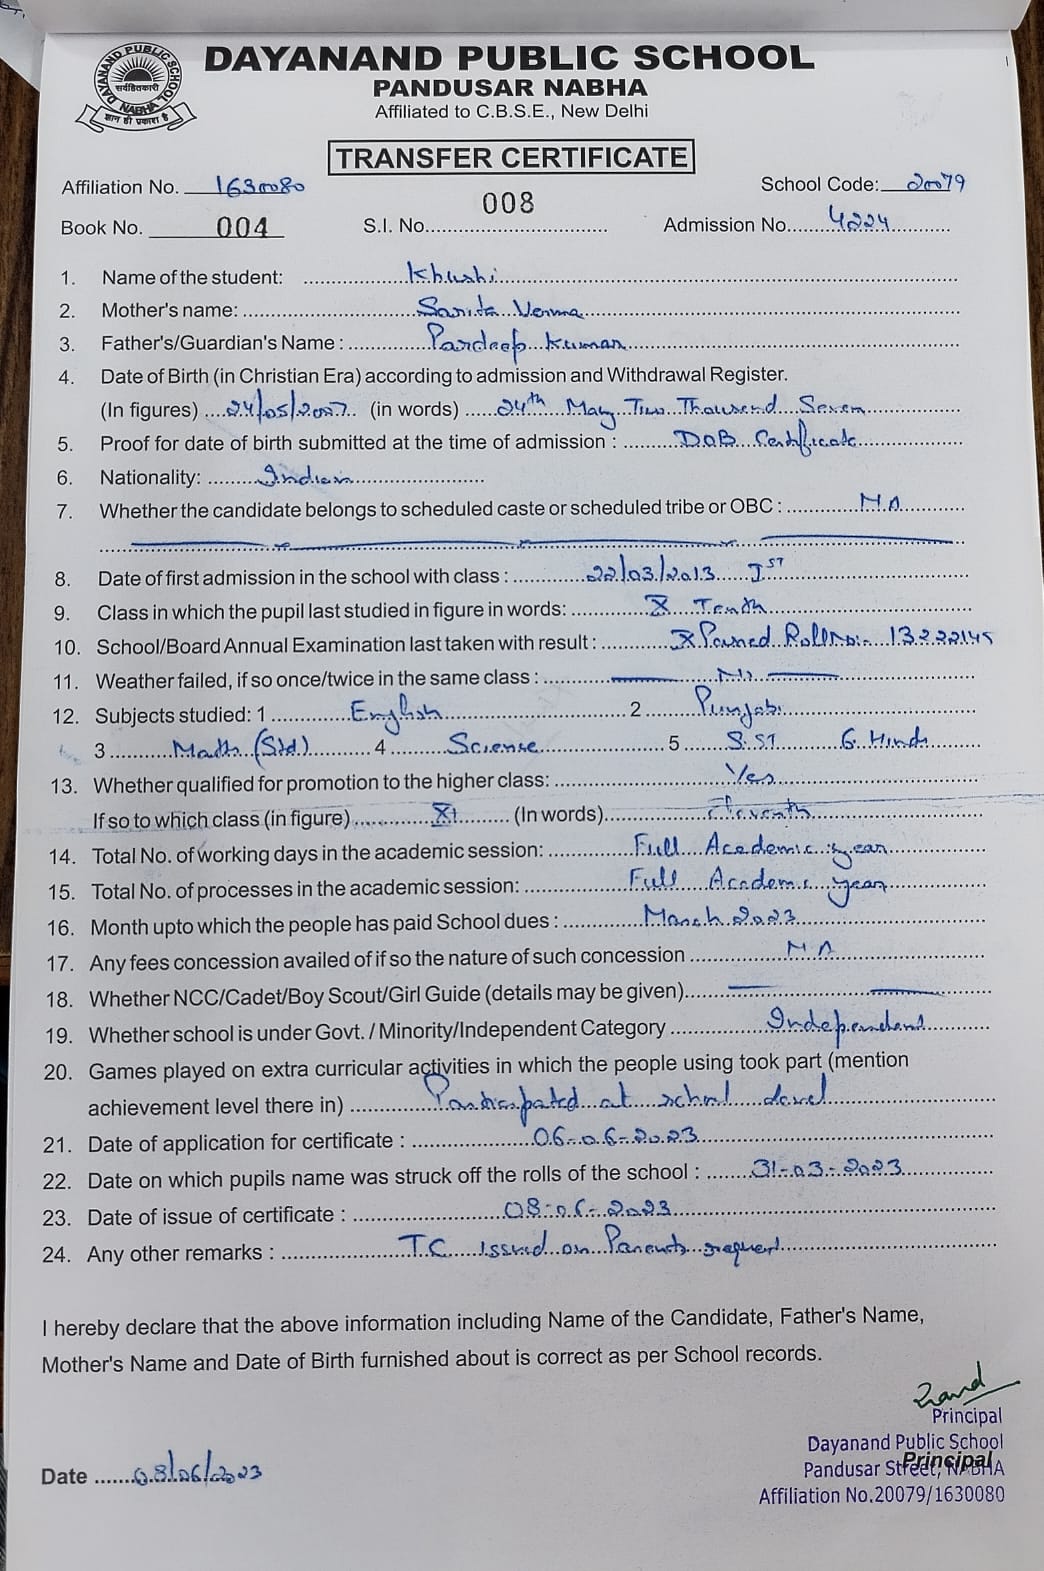 DAYANAND PUBLIC SCHOOL
PANDUSAR NABHA
Affiliated to C.B.S.E., New Delhi
DAYANAND PUBLIC SCHOOL
सर्वहितकारी
NABHA
ज्ञान ही प्रकाश है
TRANSFER CERTIFICATE
Affiliation No. 1630080 School Code: 20079
Book No. 004 S.I. No. 008 Admission No. 4224
1. Name of the student: Khushi
2. Mother's name: Sarita Verma
3. Father's/Guardian's Name : Pardeep Kumar
4. Date of Birth (in Christian Era) according to admission and Withdrawal Register.
(In figures) 24/05/2007 (in words) 24th May Two Thousend Seven
5. Proof for date of birth submitted at the time of admission : DOB Certificate
6. Nationality: Indian
7. Whether the candidate belongs to scheduled caste or scheduled tribe or OBC : NA
8. Date of first admission in the school with class : 22/03/2013 Ist
9. Class in which the pupil last studied in figure in words: X Tenth
10. School/Board Annual Examination last taken with result : X Passed Roll No:- 13222145
11. Weather failed, if so once/twice in the same class : No
12. Subjects studied: 1 English 2 Punjabi
3 Maths (Std) 4 Science 5 S.ST 6. Hindi
13. Whether qualified for promotion to the higher class: Yes
If so to which class (in figure) XI (In words) Eleventh
14. Total No. of working days in the academic session: Full Academic year
15. Total No. of processes in the academic session: Full Academic year
16. Month upto which the people has paid School dues : March 2023
17. Any fees concession availed of if so the nature of such concession NA
18. Whether NCC/Cadet/Boy Scout/Girl Guide (details may be given)
19. Whether school is under Govt. / Minority/Independent Category Independent
20. Games played on extra curricular activities in which the people using took part (mention
achievement level there in) Participated at school level
21. Date of application for certificate : 06-06-2023
22. Date on which pupils name was struck off the rolls of the school : 31-03-2023
23. Date of issue of certificate : 08-06-2023
24. Any other remarks : T.C issued on Parents request
I hereby declare that the above information including Name of the Candidate, Father's Name,
Mother's Name and Date of Birth furnished about is correct as per School records.
Principal
Dayanand Public School
Pandusar Street, NABHA
Principal
Affiliation No.20079/1630080
Date 08/06/2023